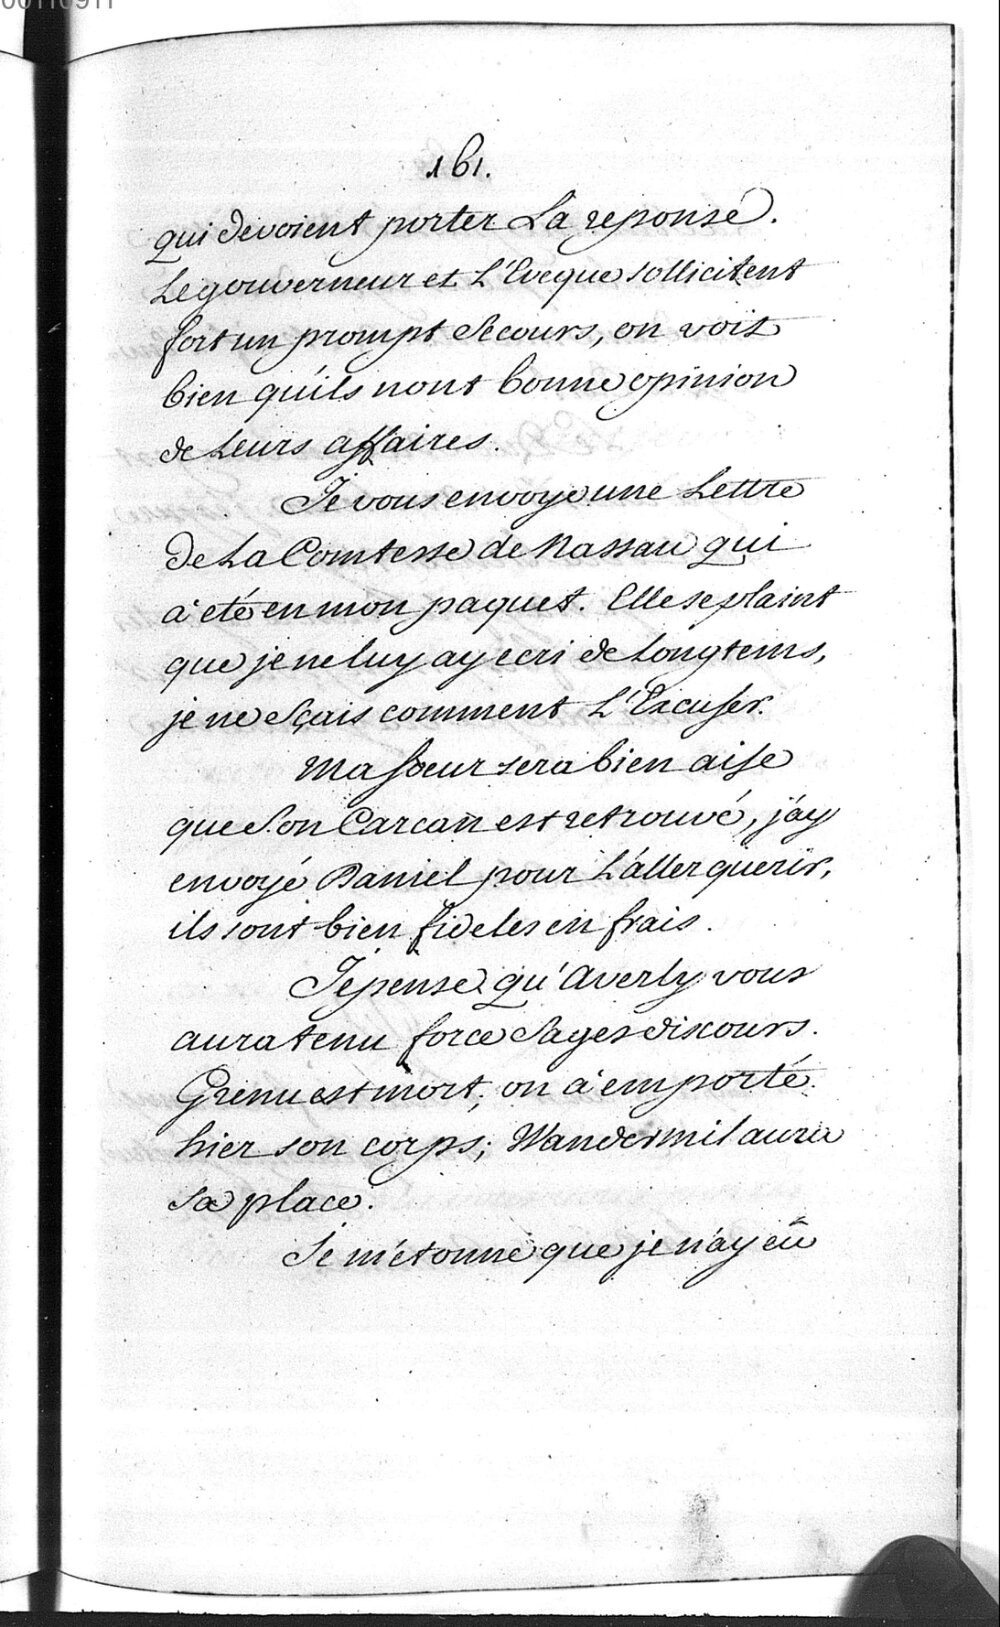 161.
qui devoient porter La reponse.
Le gouverneur et L'Eveque sollicitent
fort un prompt Secours, on voit
bien qu'ils nont bonne opinion
de Leurs affaires.
Je vous envoye une Lettre
de La Comtesse de Nassau qui
à eté en mon paquet. Elle se plaint
que je ne luy ay ecri de Longtems,
je ne sçais comment L'Excuser.
Ma Soeur sera bien aise
que Son Carcan est retrouvé, j'ay
envoyé Daniel pour L'aller querir,
ils sont bien fideles en frais.
Je pense qu'Averly vous
aura tenu force Sages discours.
Grenu est mort, on à emporté
hier son corps; Wandermil aura
sa place.
Je m'étonne que je n'ay eû